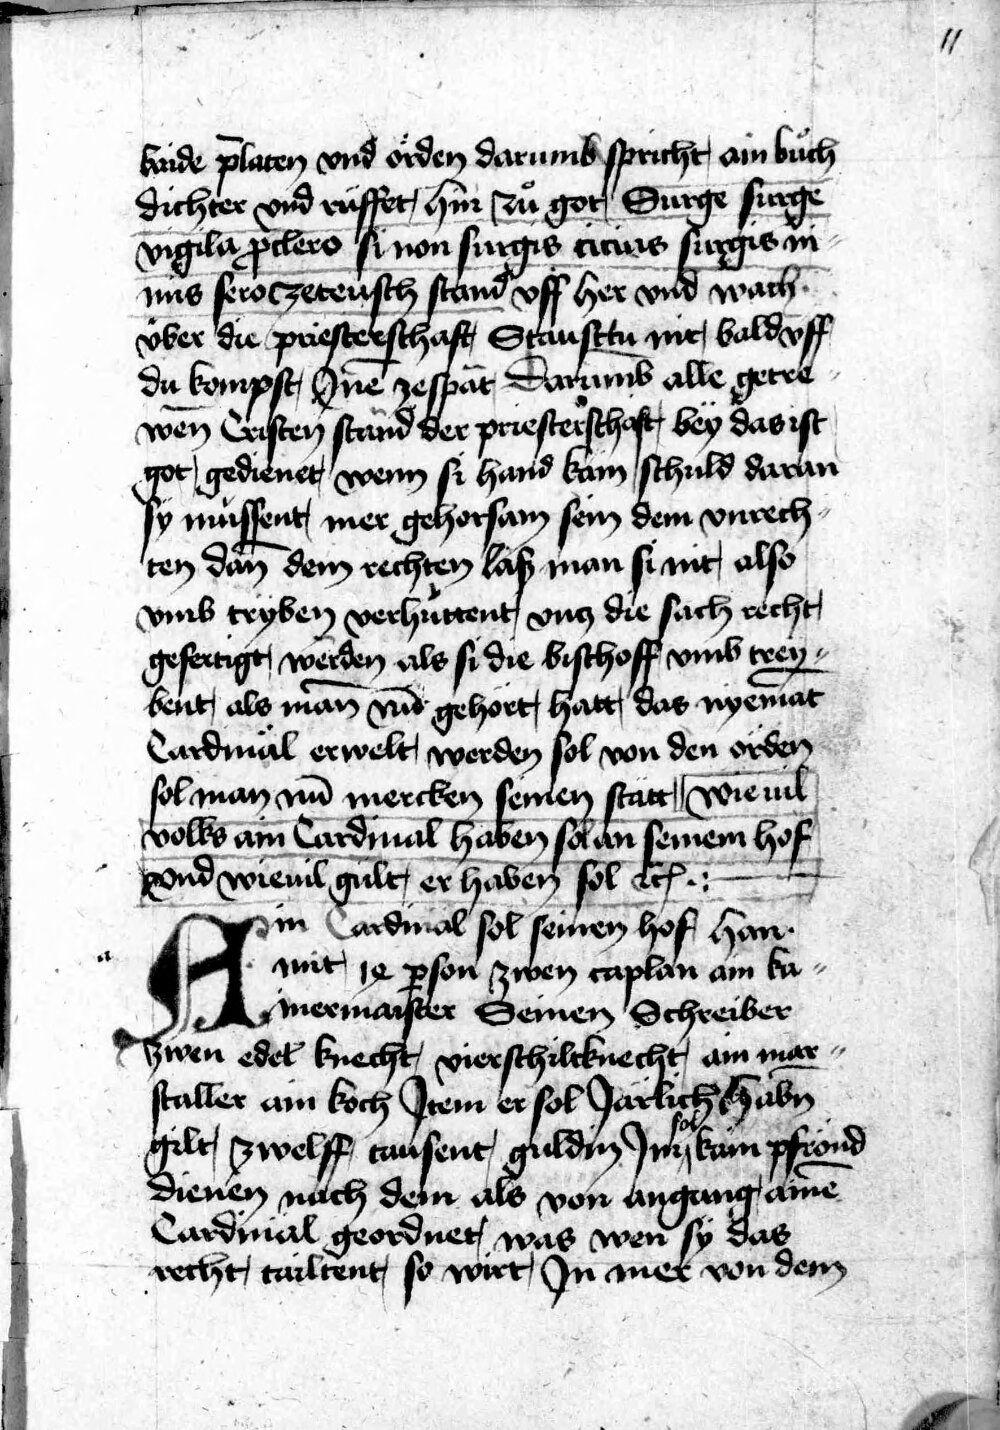 11
baide p̄laten vnd órden darumb spricht ain bůch
dichter vnd rüffet hin zů got Surge surge
vigila ꝓclero si non surgis cicius surgis ni-
mis sero zeteusch stand vff her vnd wach
über die priesterschaft Staustu nit bald vff
du kompst Jnē zespat Darumb alle getre-
wen Cristen stand der priesterschaft bëy das ist
got gedienet wenn si hand kain schuld daran
sy müssent mer gehorsam sein dem vnrech-
ten dañ dem rechten laß man si nit also
vmb tryben verhüttent vntz die sach recht
gefertigt werden als si die bischoff vmb trey-
bent als man nū gehört hatt das nyemat
Cardinäl erwelt werden sol von den órden
sol man nū mercken seinen statt wieuil
volks ain Cardinal haben sol an seinem hof
vnd wieuil gült er haben sol ꝛc̄
Ain Cardinal sol seinen hof han
mit person zwen caplan ain ka-
mermaister Seinen Schreiber
zwen edel knecht vierschiltknecht ain mar-
staller ain koch Jtem er sol Järlich habn
gilt zwelff tausent guldin Jm sol kain pfrönd
dienen nach dem als von angang ainē
Cardinal geordnet was wen sy das
recht tailtent so wirt Jn mer von dem